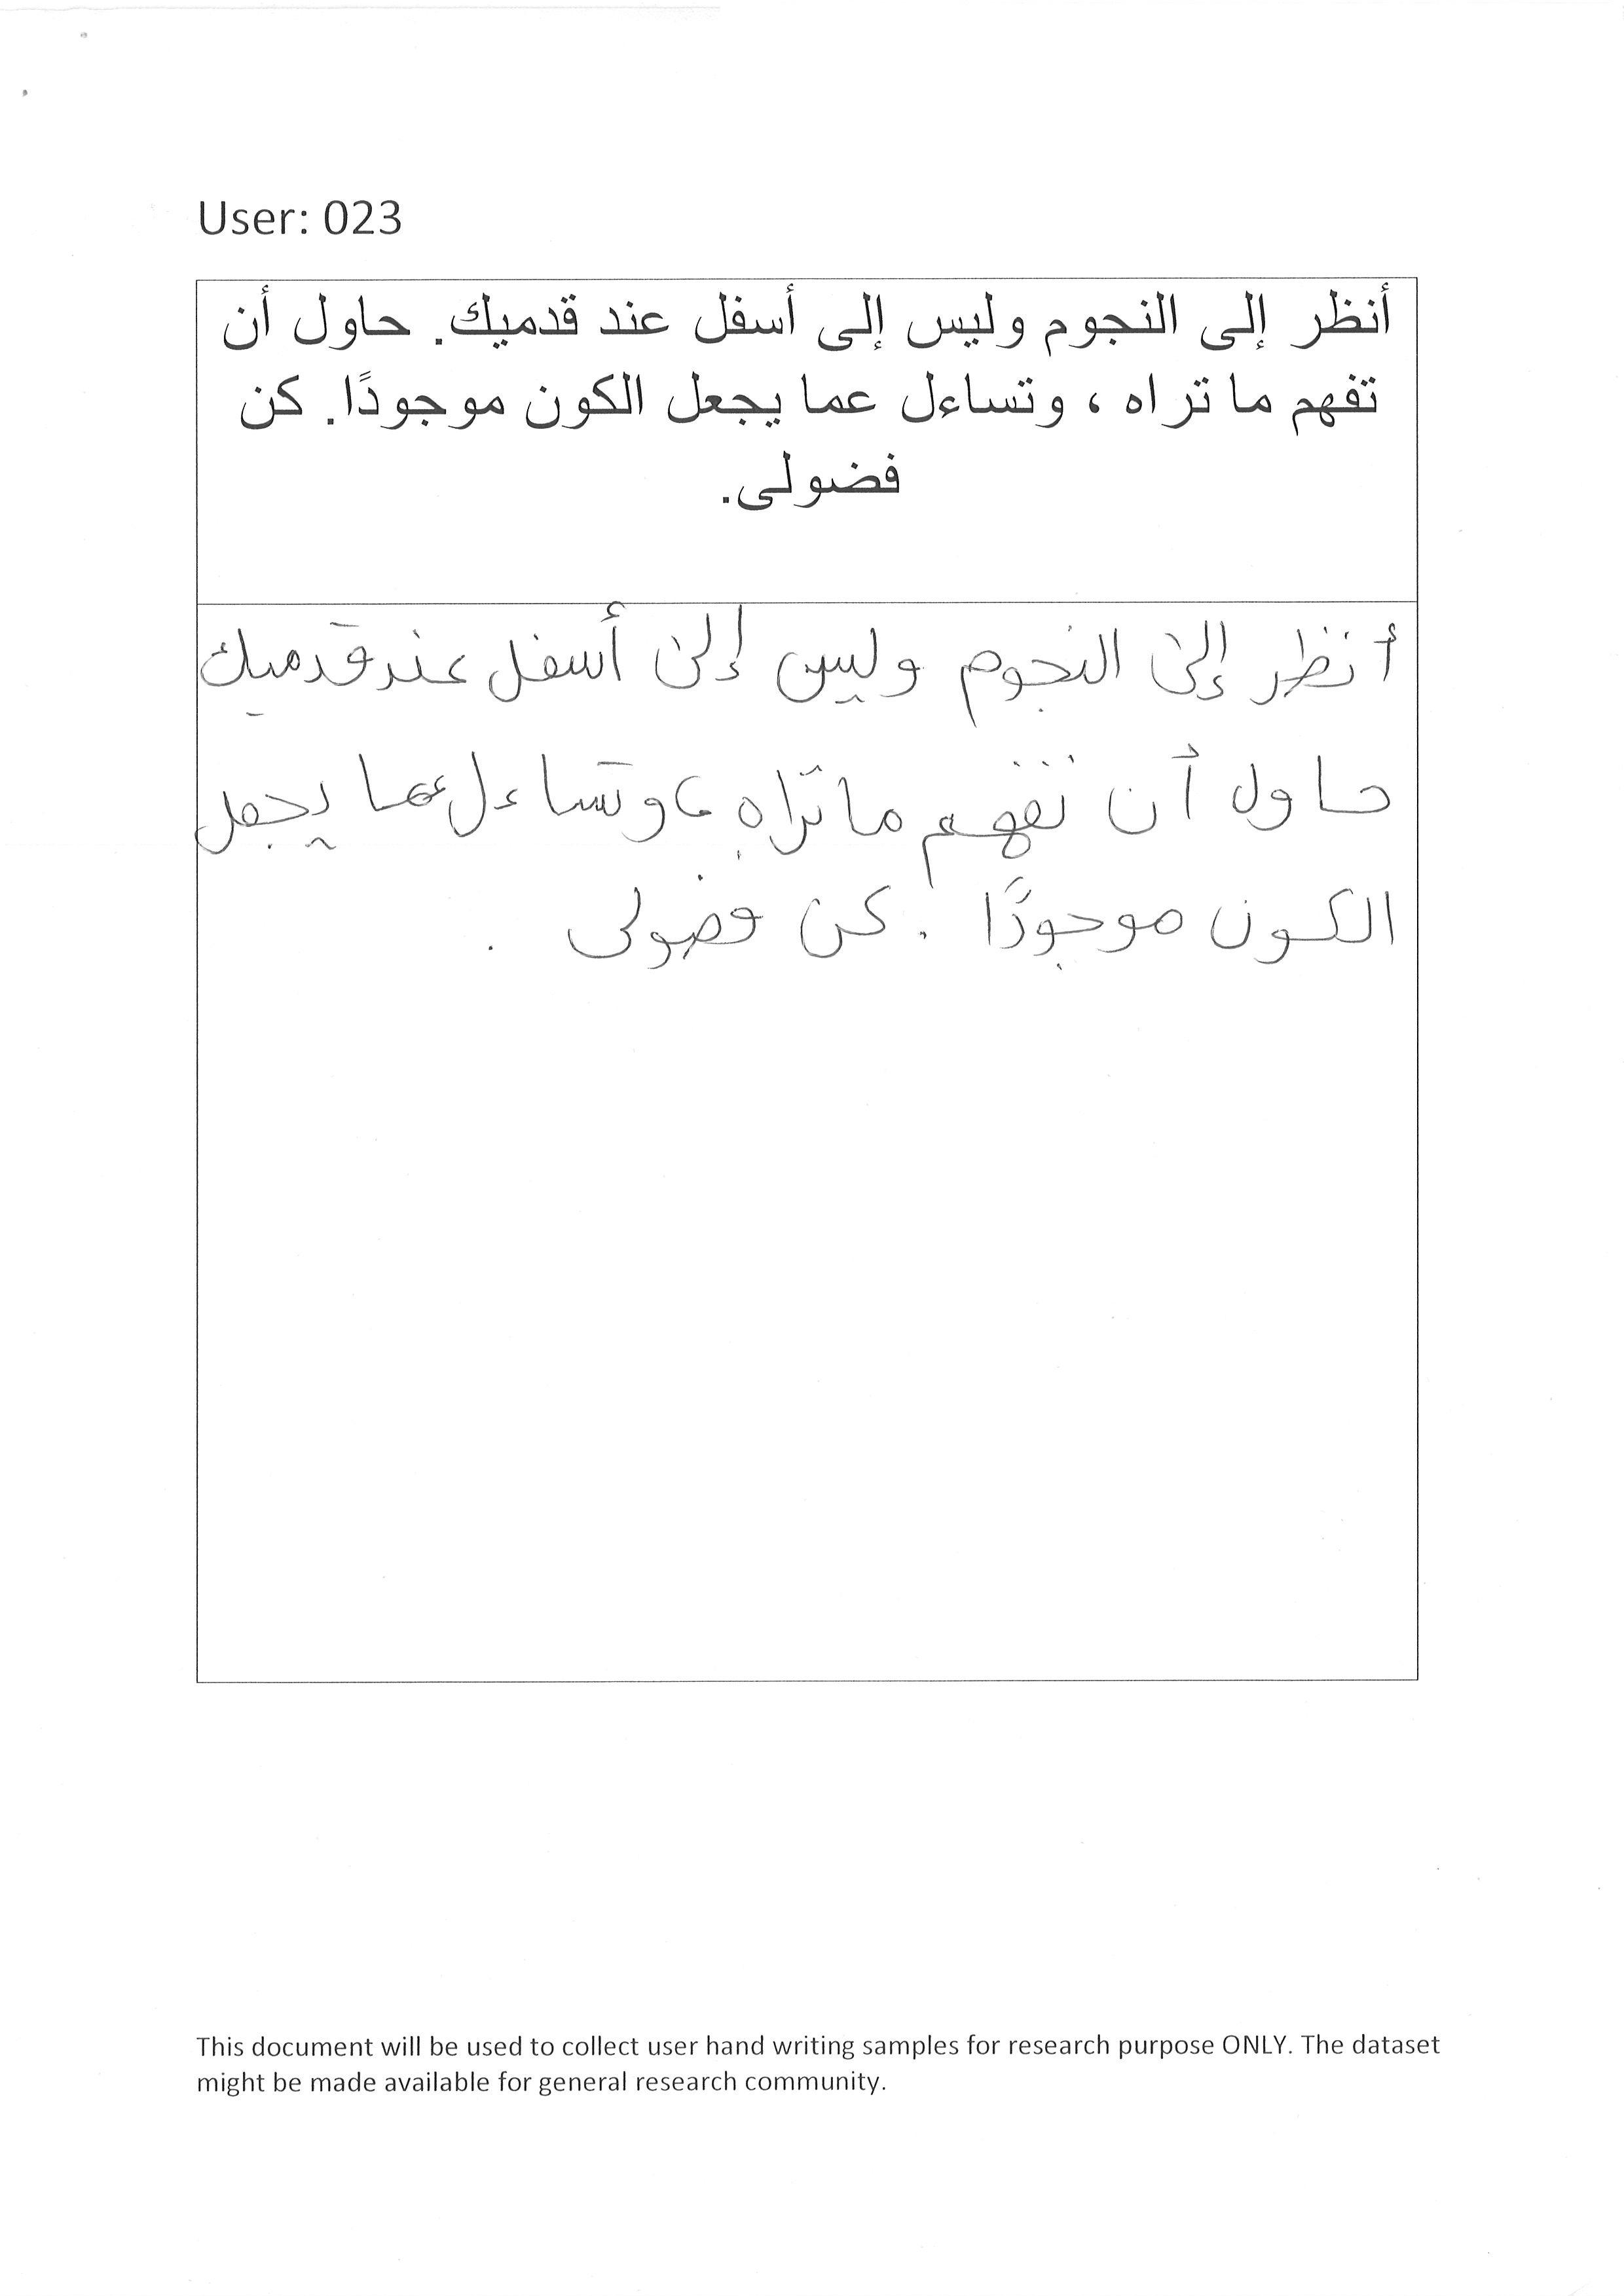 User: 023
أنظر إلى النجوم وليس إلى أسفل عند قدميك. حاول أن
تفهم ما تراه ، وتساءل عما يجعل الكون موجودًا. كن
فضولى.
أنظر إلى النجوم وليس إلى أسفل عند قدميك
حاول أن تفهم ما تراه ، وتساءل عما يجعل
الكون موجودًا . كن فضولى .
This document will be used to collect user hand writing samples for research purpose ONLY. The dataset
might be made available for general research community.